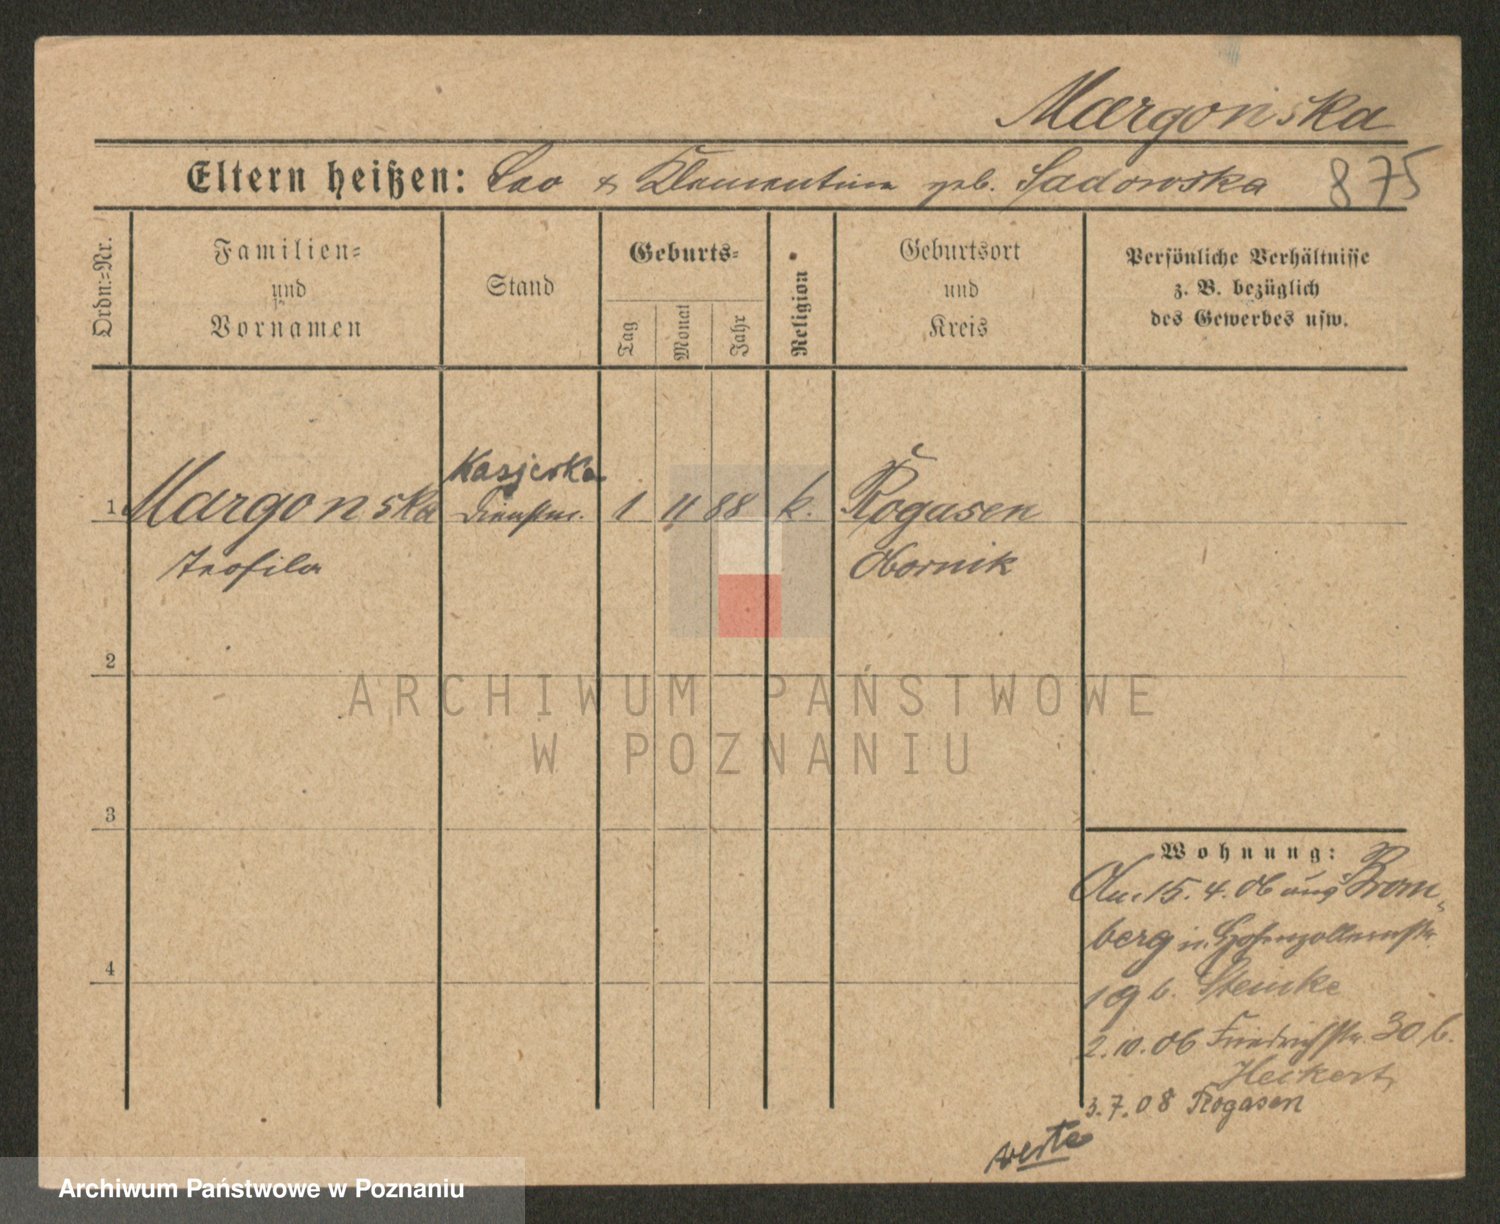 Margonska
Eltern heißen: Leo & Klementine geb. Sadowska 875
Ordn.=Nr.
Familien=
und
Vornamen
Stand
Geburts=
Tag
Monat
Jahr
Religion
Geburtsort
und
Kreis
Persönliche Verhältnisse
z. B. bezüglich
des Gewerbes usw.
Kasjerka
1 Margonska Dienstm. 1 11 88 k. Rogasen
Teofila Obornik
2
ARCHIWUM PAŃSTWOWE
W POZNANIU
3
Wohnung:
Am 15.4.06 aus Brom-
berg n. Hohenzollernstr.
19 b. Steinke
2.10.06 Friedrichstr. 30 b.
Heikert
3.7.08 Rogasen
4
verte
Archiwum Państwowe w Poznaniu